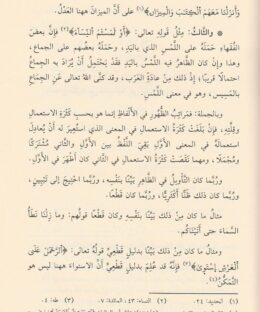 وَأَنزَلْنَا مَعَهُمُ الْكِتَابَ وَالْمِيزَانَ﴾(١) على أنَّ الميزانَ ههنا العَدْلُ.
• والثالث: مثلُ قولِه تعالى: ﴿أَوْ لَامَسْتُمُ النِّسَاءَ﴾(٢) فإنَّ بعضَ
الفقهاءِ حَمَلَهُ على اللَّمْسِ الذي باليَدِ، وحملَهُ بعضُهم على الجماعِ،
وهذا وإنْ كان الظاهرُ فيه اللَّمْسَ باليَدِ فقد يَحْتَمِلُ أنْ يُرادَ به الجماعُ
احتمالًا قريبًا؛ إذ ذلك مِنْ عادَةِ العَرَبِ، وقد كَنَّى اللهُ تعالى عن الجِماعِ
بالمَسِيسِ، وهو في معنى اللَّمْسِ.
وبالجملة: فمراتبُ الظُّهُورِ في الألفاظِ إنما هو بحسبِ كَثْرَةِ الاستعمالِ
وقِلَّتِهِ، فإنْ بَلَغَتْ كَثْرَةُ الاستعمالِ في المعنى الذي استُعِيرَ له أنْ يُعادِلَ
استعمالُهُ في المعنى الأولِ بَقِيَ اللفظُ بين الأوَّلِ والثاني مُشْتَرَكًا
ومُجْمَلًا، ومهما نَقَصَتْ كَثْرَةُ الاستعمالِ في الثاني كان أظهرَ في الأوَّلِ.
وربَّما كان التأويلُ في الظاهرِ بَيِّنًا بنفسِه، وربَّما احتِيجَ إلى تَبْيِينٍ،
وربَّما كان ذلك ظَنًّا أكثريًّا، وربَّما كان قطعيًّا.
مثالُ ما كان مِنْ ذلك بَيِّنًا بنفسِه وكان قطعًا قولُهم: ما زِلْنَا نَطَأُ
السَّماءَ حتى أَتَيْنَاكُم.
ومثالُ ما كان مِنْ ذلك بَيِّنًا بدليلٍ قطعيٍّ قولُهُ تعالى: ﴿الرَّحْمَنُ عَلَى
الْعَرْشِ اسْتَوَى﴾(٣) فإنَّه قد عُلِمَ بدليلٍ قطعيٍّ أنَّ الاستواءَ ههنا ليس هو
التَّمَكُّنُ
(١) الحديد: ٢٤. (٢) النساء: ٤٣، المائدة: ٧. (٣) طه: ٤.